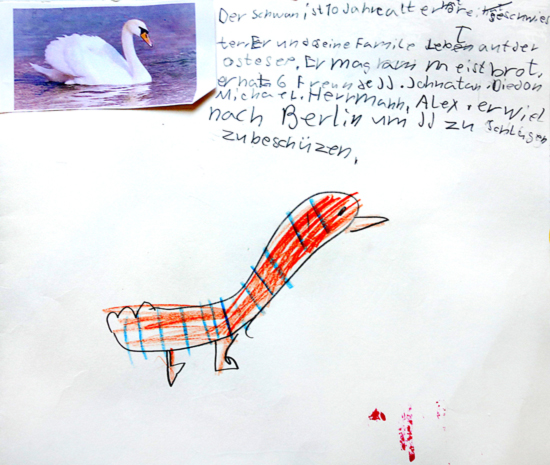 Der Schwan ist 10 Jahre alt er hat ein geschwis
ter. Er und seine Familie Leben auf der
ostesee. Er mag kaum meist brot.
er hat 6 Freunde JJ. Johnatan. Diedon
Michael. Herrmann, Alex. er wiel
nach Berlin um JJ zu
zubeschüzen.